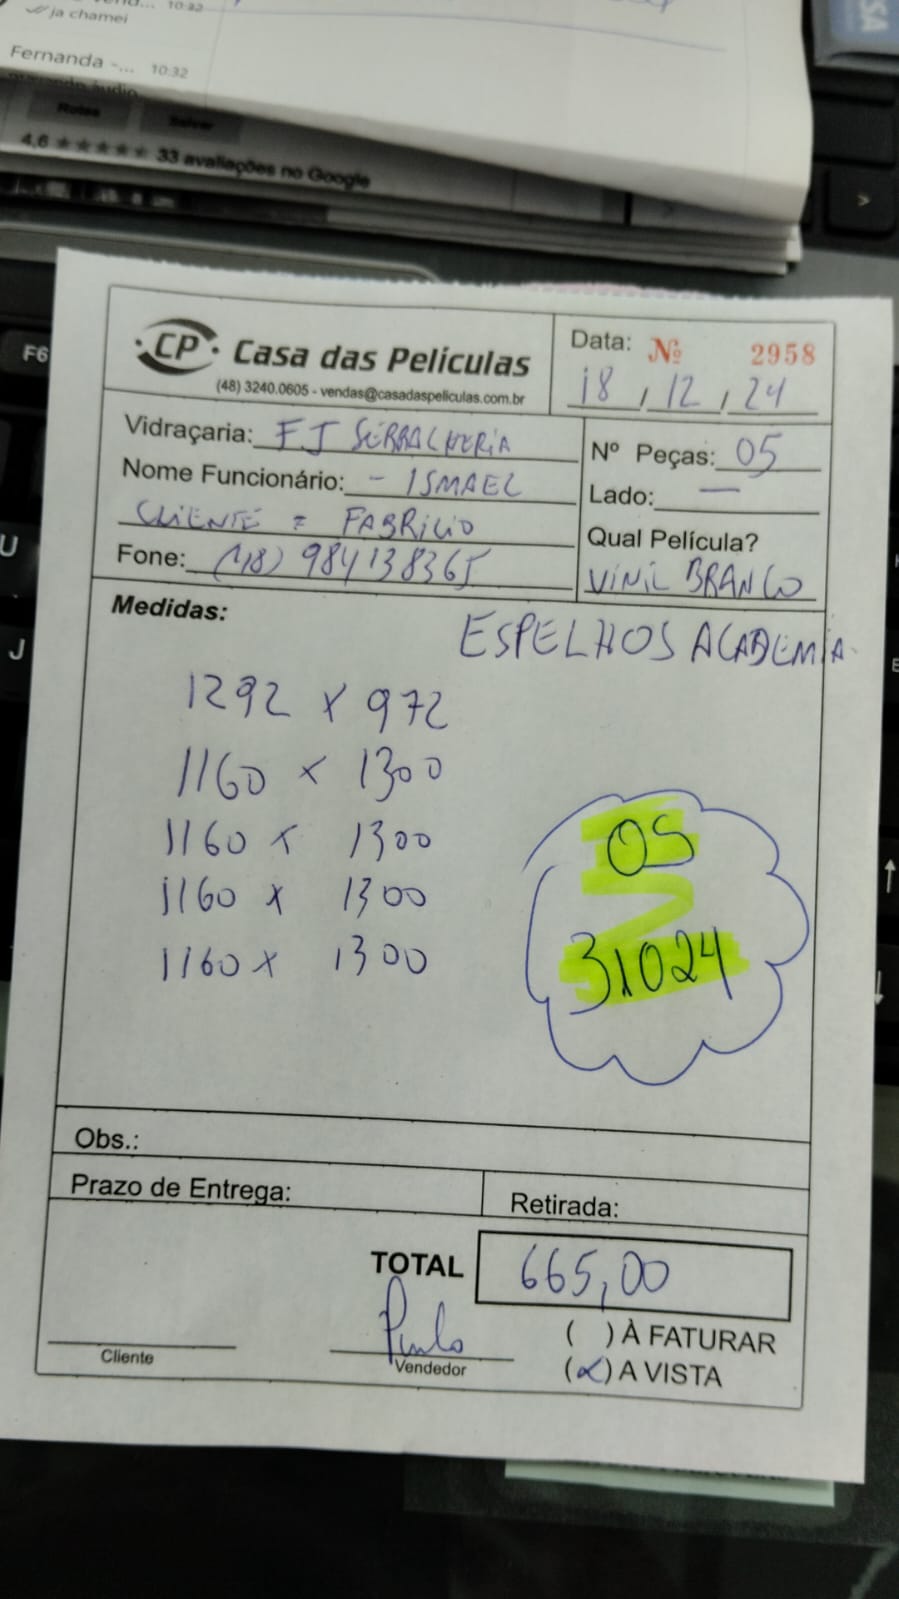 ja chamei
10:32
Fernanda -... 10:32
Rotas Salvar
4,6 ★★★★★ 33 avaliações no Google
F6
U
J
CP Casa das Películas
(48) 3240.0605 - vendas@casadaspeliculas.com.br
Data: Nº 2958
18, 12, 24
Vidraçaria: FJ SERRALHERIA
Nome Funcionário: - ISMAEL
CLIENTE = FABRICIO
Fone: (48) 984138365
Nº Peças: 05
Lado: —
Qual Película?
VINIL BRANCO
Medidas:
ESPELHOS ACADEMIA
1292 x 972
1160 x 1300
1160 x 1300
1160 x 1300
1160 x 1300
OS
31024
Obs.:
Prazo de Entrega:
Retirada:
TOTAL 665,00
( ) À FATURAR
(x) A VISTA
Cliente
Vendedor